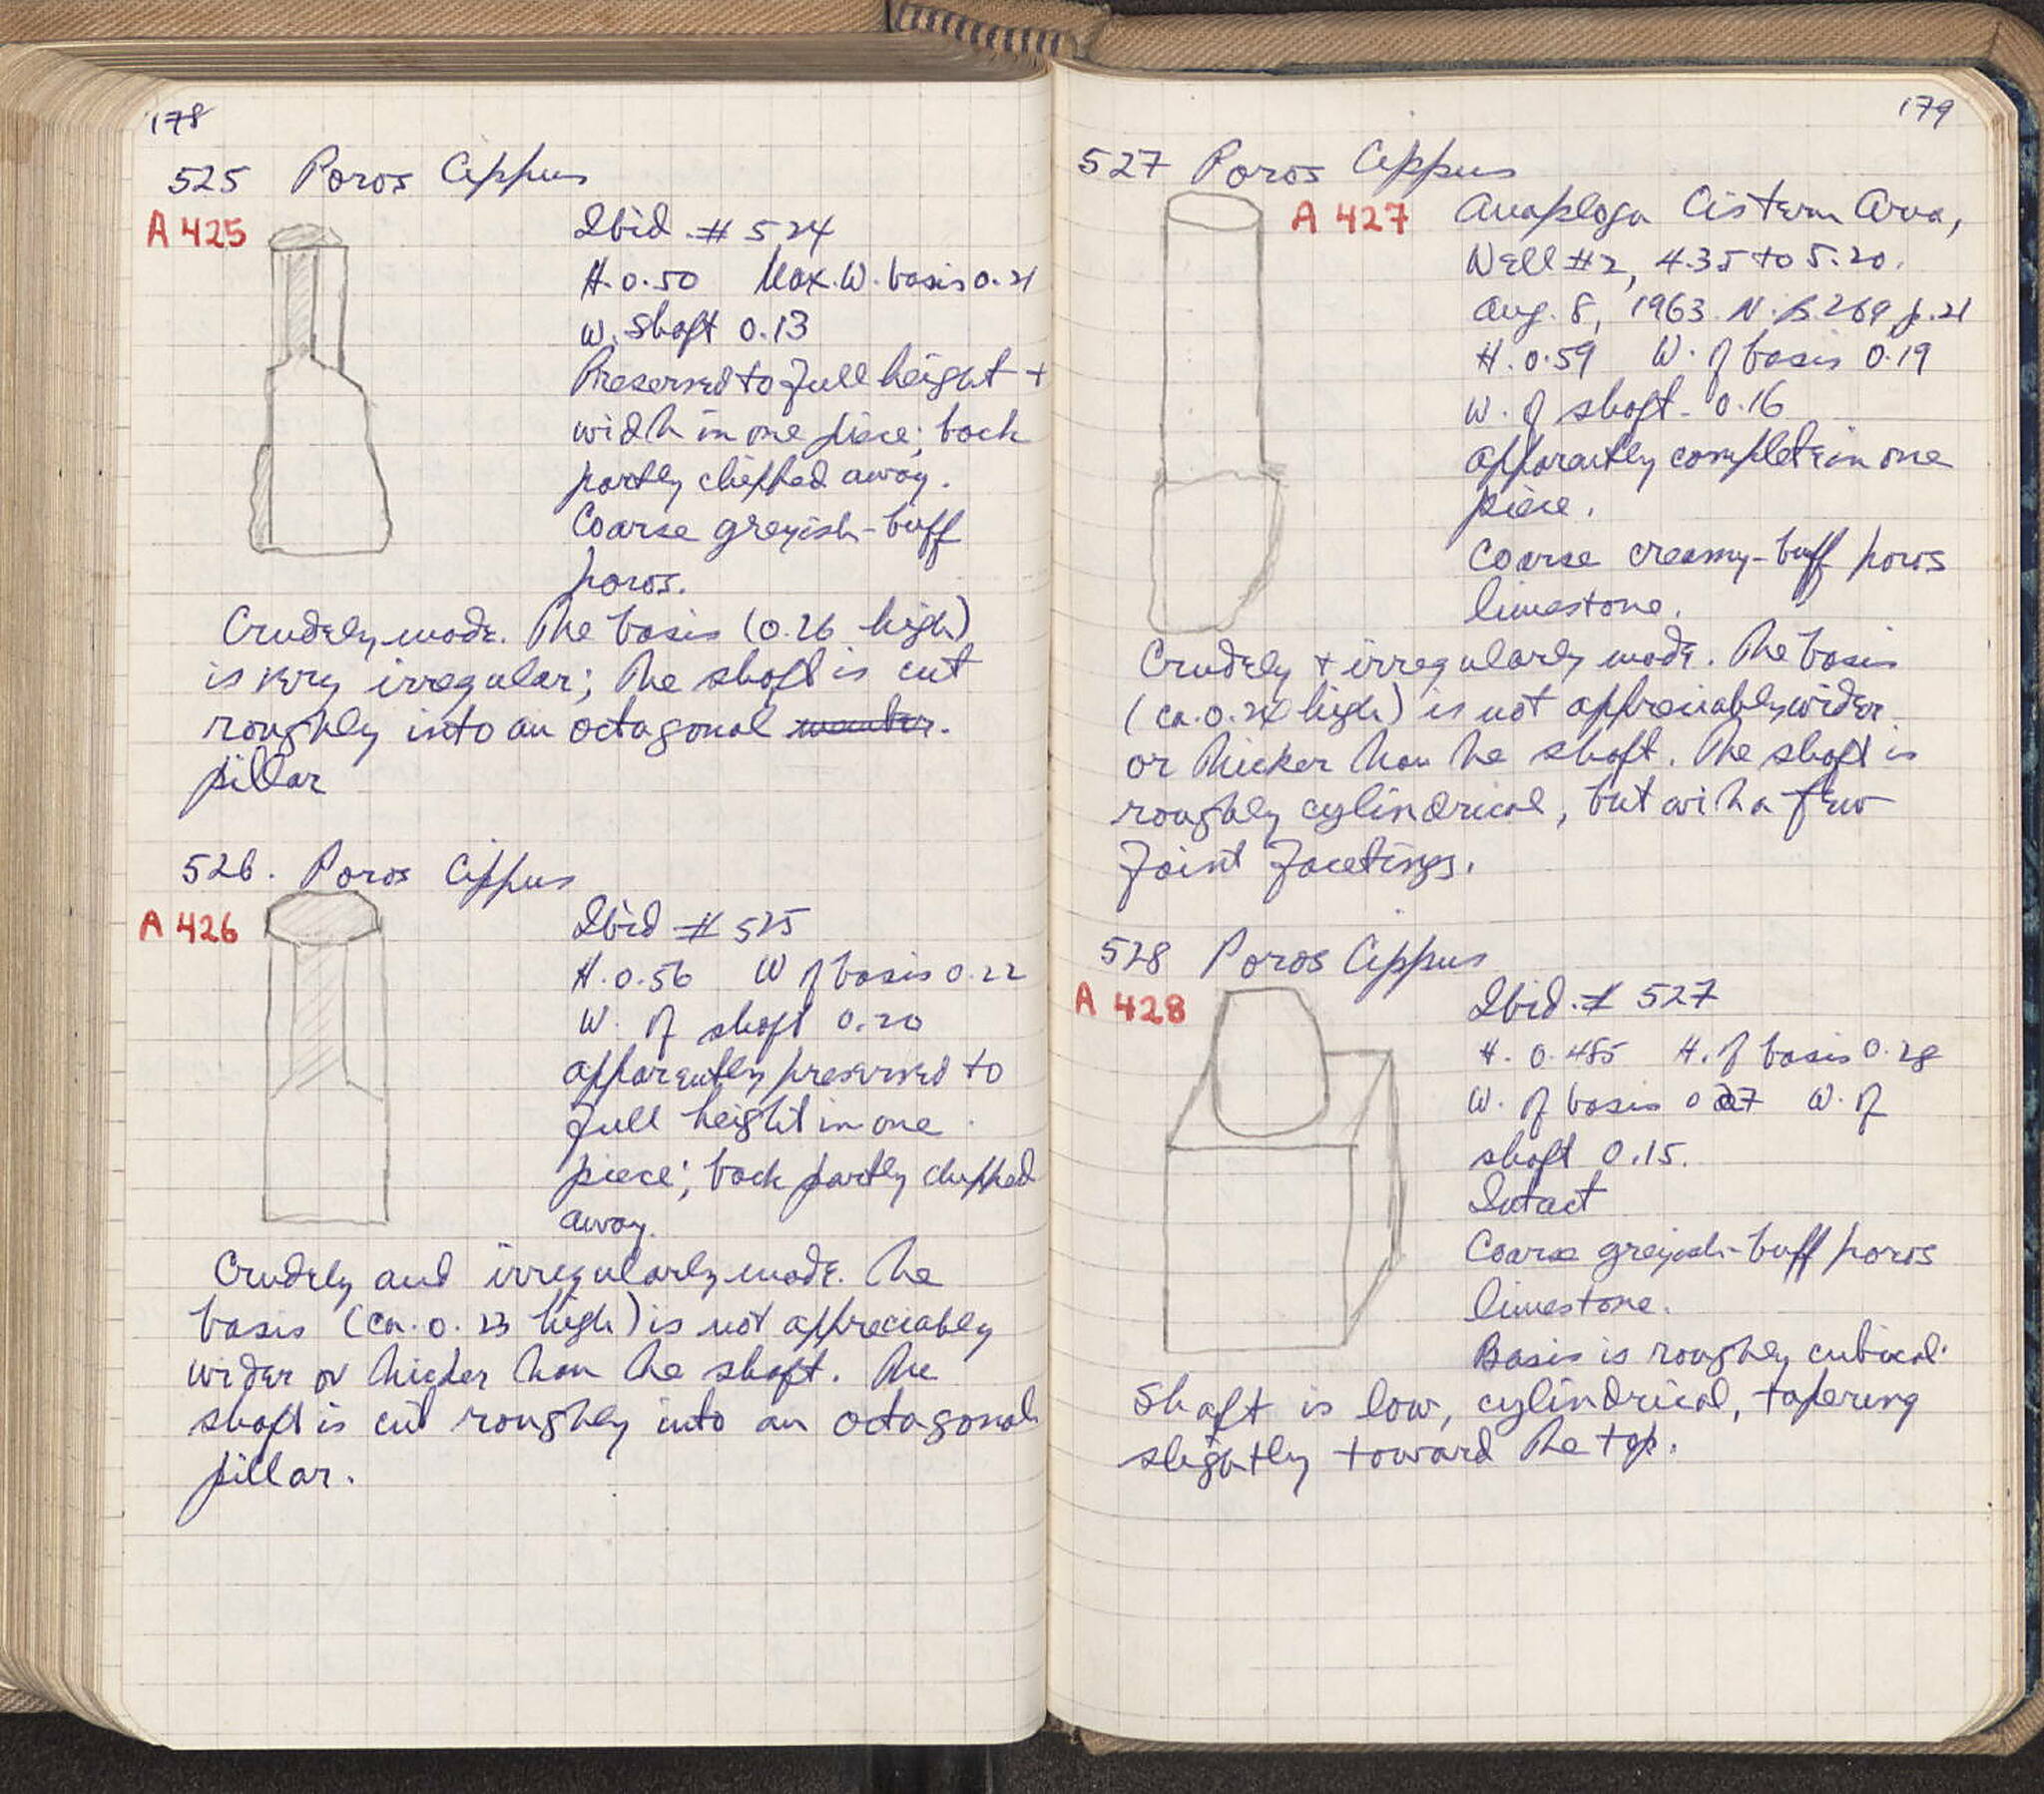 178
525 Poros Cippus
A 425
Ibid. # 524
H. 0.50 Max. W. basis 0.21
W. shaft 0.13
Preserved to full height +
width in one piece; back
partly chipped away.
Coarse greyish-buff
poros.
Crudely made. The basis (0.26 high)
is very irregular; the shaft is cut
roughly into an octagonal member.
pillar
526. Poros Cippus
A 426
Ibid # 525
H. 0.56 W of basis 0.22
W. of shaft 0.20
apparently preserved to
full height in one
piece; back partly chipped
away.
Crudely and irregularly made. The
basis (ca. 0.23 high) is not appreciably
wider or thicker than the shaft. The
shaft is cut roughly into an octagonal
pillar.
179
527 Poros Cippus
A 427
Anaploga Cistern Area,
Well #2, 4.35 to 5.20.
Aug. 8, 1963. N.B. 269 p. 21
H. 0.59 W. of basis 0.19
W. of shaft 0.16
apparently complete in one
piece.
Coarse creamy-buff poros
limestone.
Crudely + irregularly made. The basis
(ca. 0.24 high) is not appreciably wider
or thicker than the shaft. The shaft is
roughly cylindrical, but with a few
faint facetings.
528 Poros Cippus
A 428
Ibid. # 527
H. 0.485 H. of basis 0.28
W. of basis 0.27 W. of
shaft 0.15.
Intact
Coarse greyish-buff poros
limestone.
Basis is roughly cubical.
Shaft is low, cylindrical, tapering
slightly toward the top.